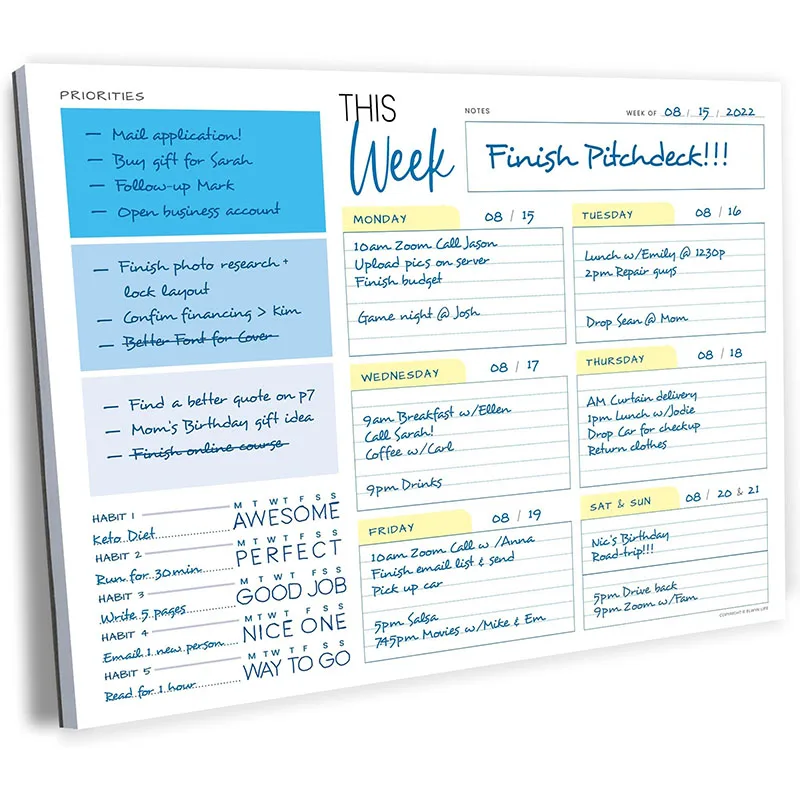 PRIORITIES
— Mail application!
— Buy gift for Sarah
— Follow-up Mark
— Open business account
— Finish photo research +
lock layout
— Confim financing > Kim
— Better Font for Cover
— Find a better quote on p7
— Mom's Birthday gift idea
— Finish online course
HABIT 1 M T W T F S S
Keto Diet AWESOME
HABIT 2 M T W T F S S
Run for 30 min. PERFECT
HABIT 3 M T W T F S S
Write 5 pages GOOD JOB
HABIT 4 M T W T F S S
Email 1 new person NICE ONE
HABIT 5 M T W T F S S
Read for 1 hour WAY TO GO
THIS
Week
NOTES
WEEK OF 08 / 15 / 2022
Finish Pitchdeck!!!
MONDAY 08 / 15
10am Zoom Call Jason
Upload pics on server
Finish budget
Game night @ Josh
TUESDAY 08 / 16
Lunch w/Emily @ 1230p
2pm Repair guys
Drop Sean @ Mom
WEDNESDAY 08 / 17
9am Breakfast w/Ellen
Call Sarah!
Coffee w/Carl
9pm Drinks
THURSDAY 08 / 18
AM Curtain delivery
1pm Lunch w/Jodie
Drop Car for checkup
Return clothes
FRIDAY 08 / 19
10am Zoom Call w /Anna
Finish email list & send
Pick up car
5pm Salsa
745pm Movies w/Mike & Em
SAT & SUN 08 / 20 & 21
Nic's Birthday
Road-trip!!!
5pm Drive back
9pm Zoom w/Fam